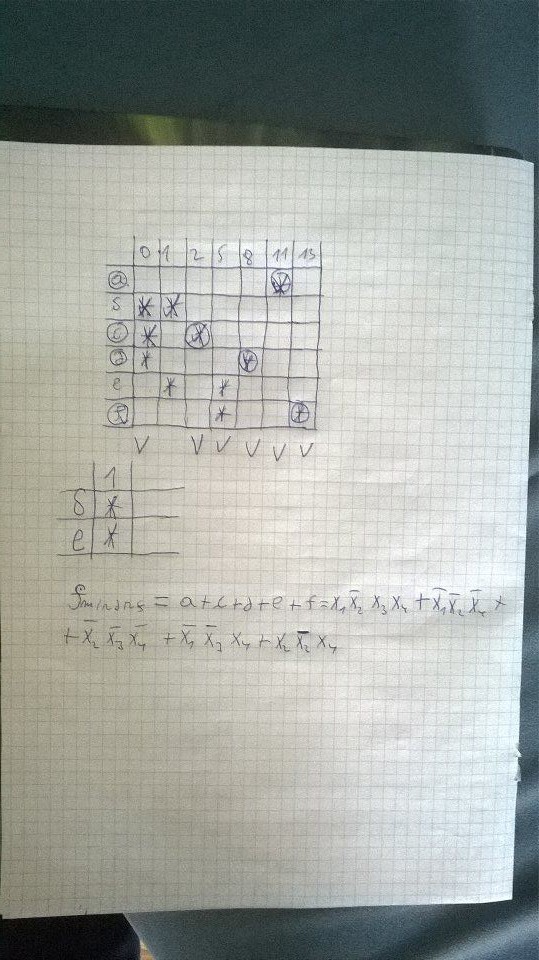 0 1 2 5 8 11 13
a *
b * *
c * *
d * *
e * *
f * *
V V V V V V
1
b *
e *
= a+c+d+e+f = x₁ x̄₂ x₃ x₄ + x̄₁ x̄₂ x̄₄ +
+ x̄₂ x̄₃ x̄₄ + x̄₁ x̄₃ x₄ + x₂ x̄₃ x₄